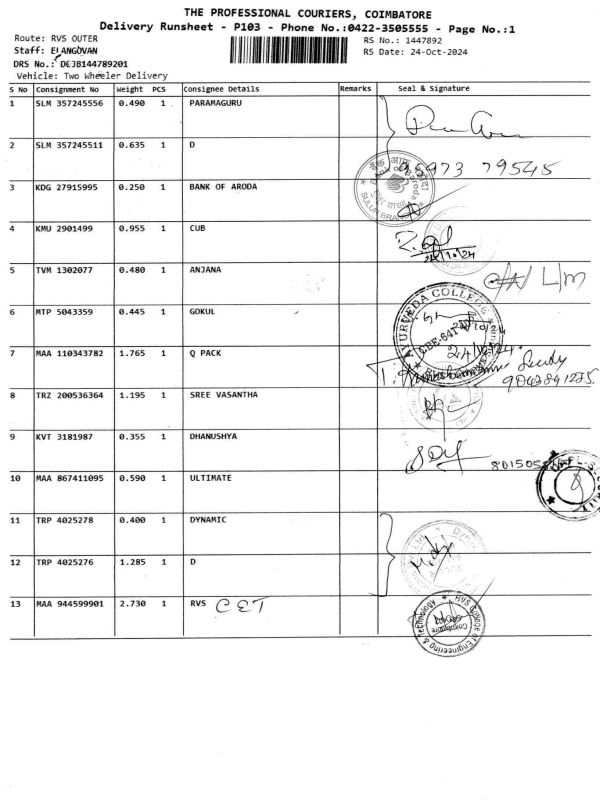 THE PROFESSIONAL COURIERS, COIMBATORE
Delivery Runsheet - P103 - Phone No.:0422-3505555 - Page No.:1
Route: RVS OUTER
RS No.: 1447892
Staff: ELANGOVAN
RS Date: 24-Oct-2024
DRS No.: DEJB144789201
Vehicle: Two Wheeler Delivery
S No Consignment No Weight PCS Consignee Details Remarks Seal & Signature
1 SLM 357245556 0.490 1 PARAMAGURU
2 SLM 357245511 0.635 1 D
95973 79545
3 KDG 27915995 0.250 1 BANK OF ARODA
SULUR BRANCH
4 KMU 2901499 0.955 1 CUB
24/10/24
5 TVM 1302077 0.480 1 ANJANA
6 MTP 5043359 0.445 1 GOKUL
AYURVEDA COLLEGE
7 MAA 110343782 1.765 1 Q PACK
8 TRZ 200536364 1.195 1 SREE VASANTHA
9 KVT 3181987 0.355 1 DHANUSHYA
10 MAA 867411095 0.590 1 ULTIMATE
11 TRP 4025278 0.400 1 DYNAMIC
12 TRP 4025276 1.285 1 D
13 MAA 944599901 2.730 1 RVS CET
RVS College of Engineering & Technology
Coimbatore